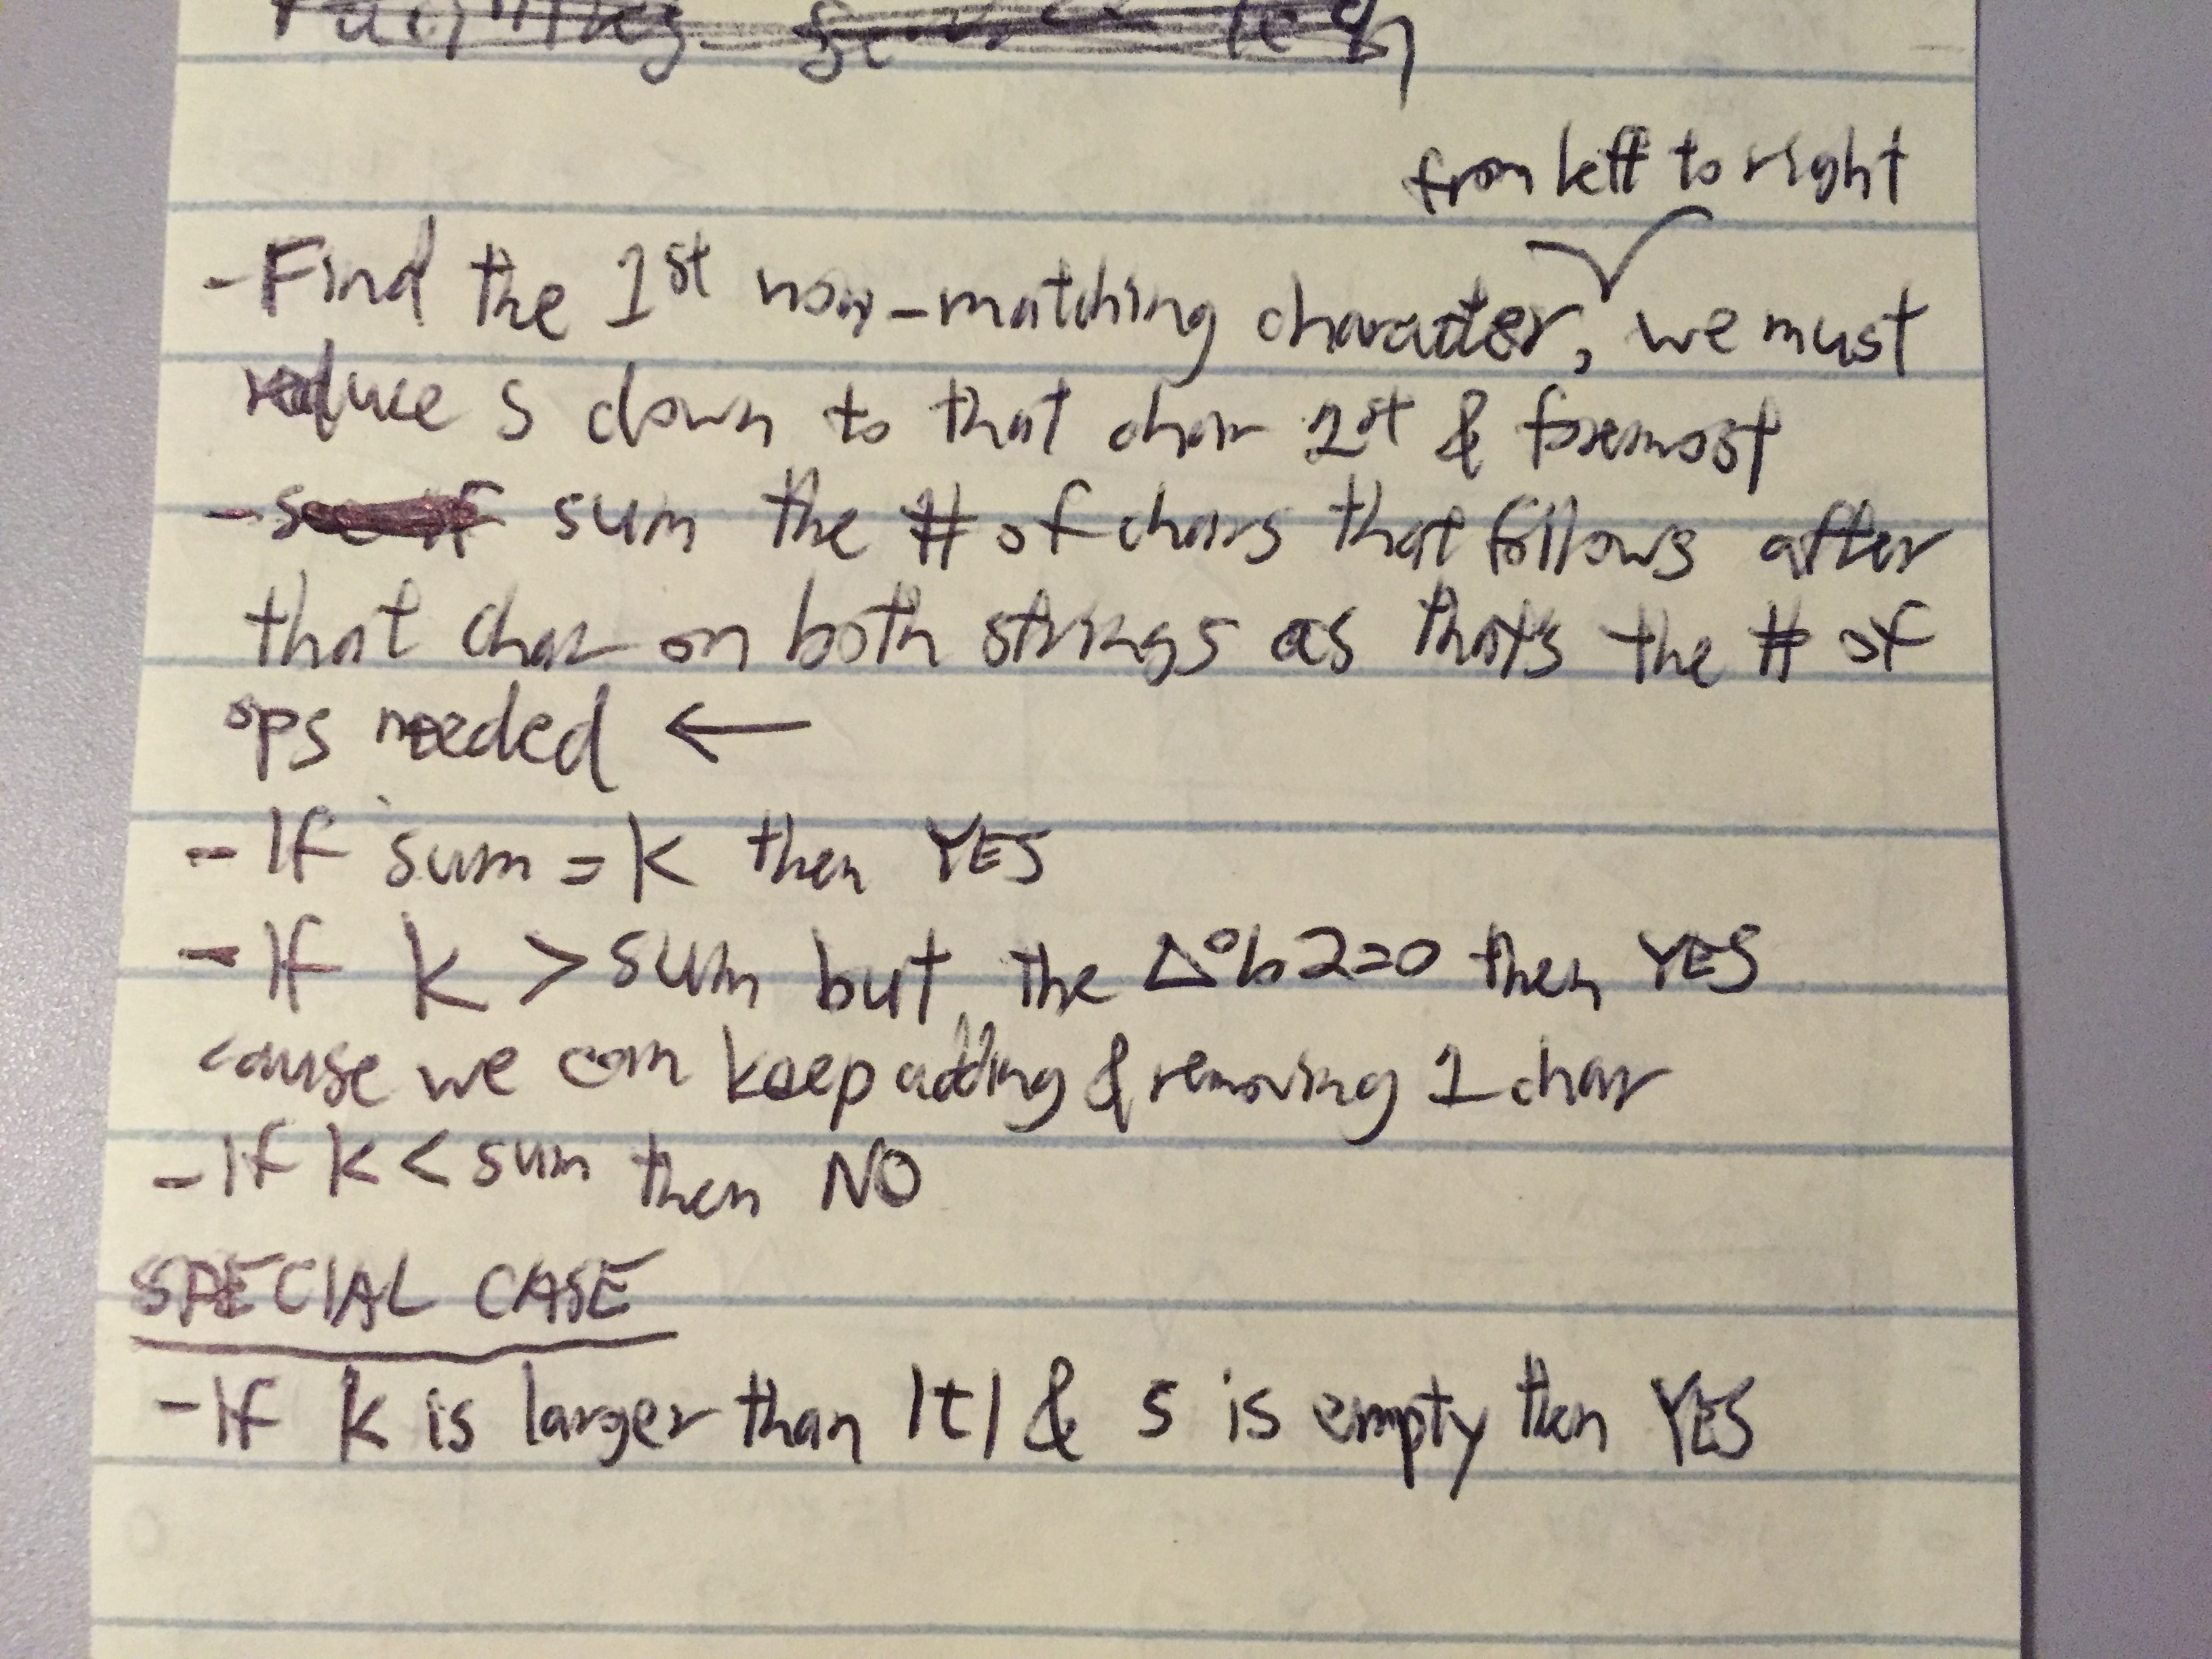 from left to right
- Find the 1st non-matching character, we must
reduce s down to that char 1st & foremost
- sum the # of chars that follows after
that char on both strings as that's the # of
ops needed ←
- If sum = K then YES
- If K > sum but the Δ%2=0 then YES
cause we can keep adding & removing 1 char
- If K < sum then NO
SPECIAL CASE
- If K is larger than |t| & s is empty then YES